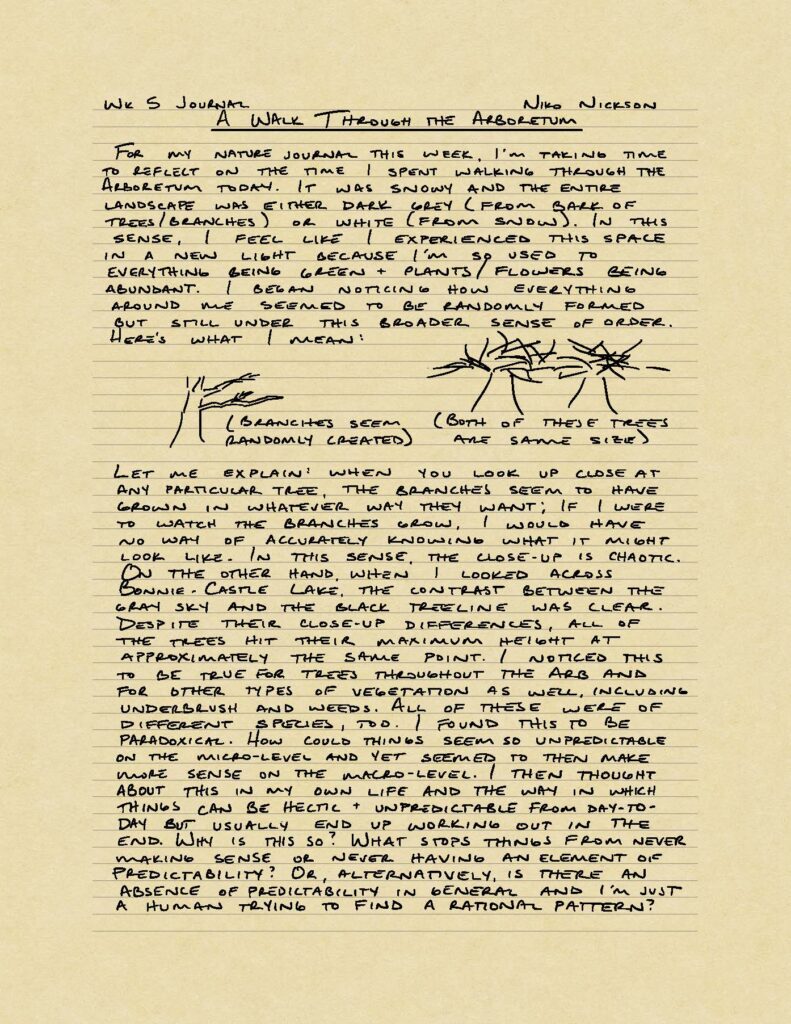 Wk 5 Journal Niko Nickson
A Walk Through the Arboretum
For my nature journal this week, I'm taking time
to reflect on the time I spent walking through the
Arboretum today. It was snowy and the entire
landscape was either dark grey (from bark of
trees/branches) or white (from snow). In this
sense, I feel like I experienced this space
in a new light because I'm so used to
everything being green + plants/flowers being
abundant. I began noticing how everything
around me seemed to be randomly formed
but still under this broader sense of order.
Here's what I mean:
(Branches seem (Both of these trees
randomly created) are same size)
Let me explain: when you look up close at
any particular tree, the branches seem to have
grown in whatever way they want; if I were
to watch the branches grow, I would have
no way of accurately knowing what it might
look like. In this sense, the close-up is chaotic.
On the other hand, when I looked across
Bonnie-Castle Lake, the contrast between the
gray sky and the black treeline was clear.
Despite their close-up differences, all of
the trees hit their maximum height at
approximately the same point. I noticed this
to be true for trees throughout the Arb and
for other types of vegetation as well, including
underbrush and weeds. All of these were of
different species, too. I found this to be
paradoxical. How could things seem so unpredictable
on the micro-level and yet seemed to then make
more sense on the macro-level. I then thought
about this in my own life and the way in which
things can be hectic + unpredictable from day-to-
day but usually end up working out in the
end. Why is this so? What stops things from never
making sense or never having an element of
predictability? Or, alternatively, is there an
absence of predictability in general and I'm just
a human trying to find a rational pattern?